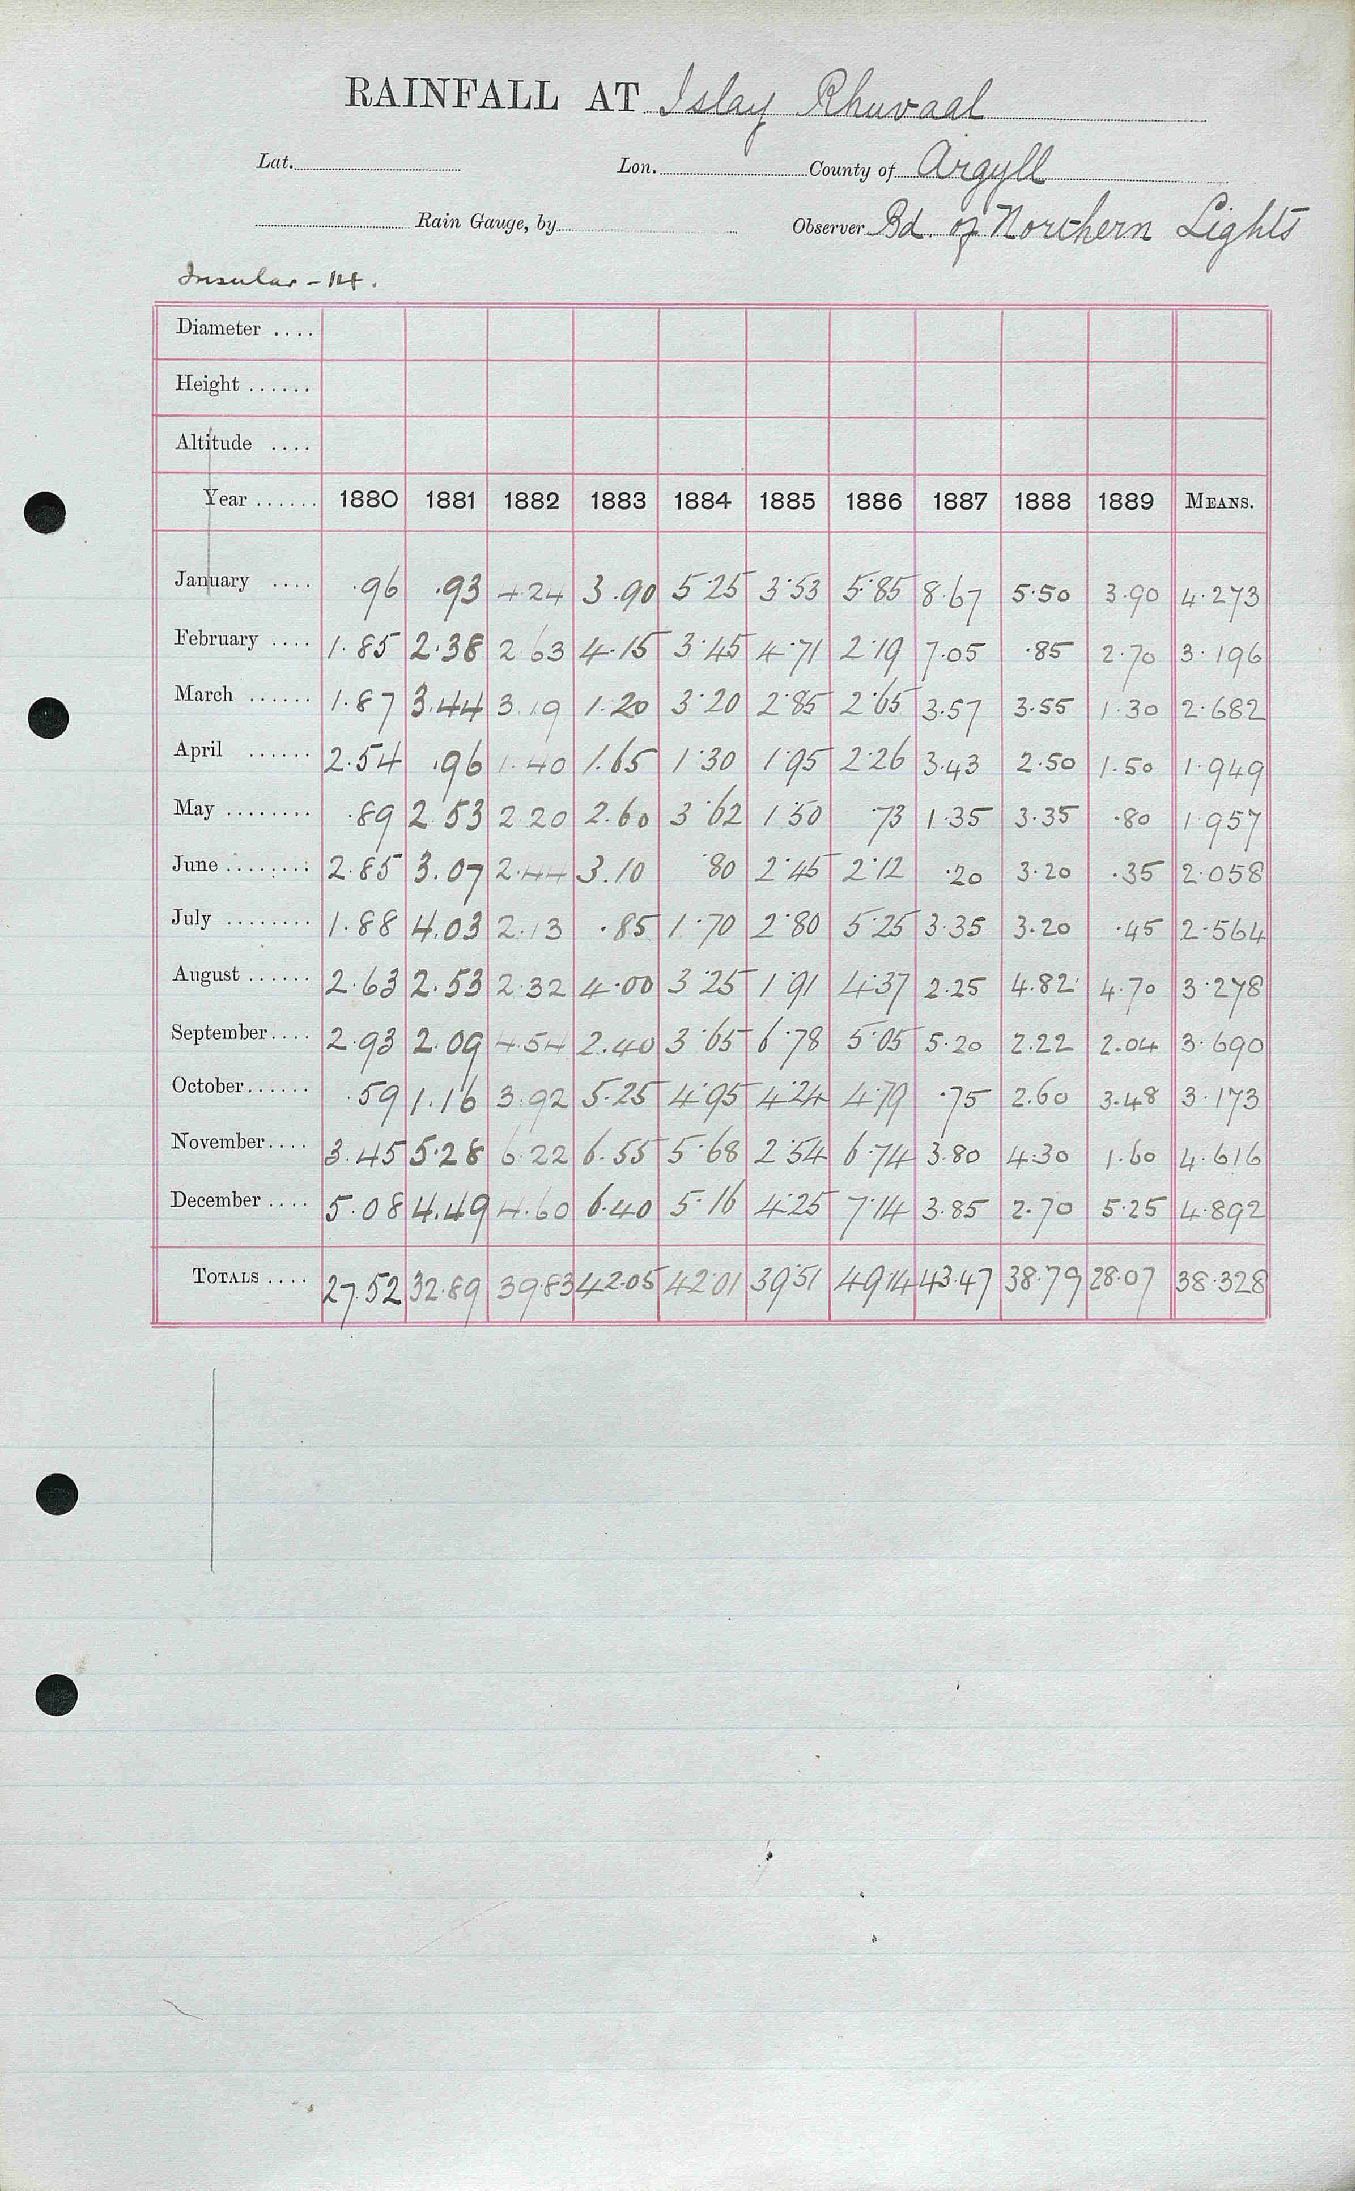 RAINFALL AT Islay Rhuvaal
Lat. Lon. County of Argyll
Rain Gauge, by Observer Bd. of Northern Lights
Insular - 14.
Diameter ....
Height ......
Altitude ....
Year ...... 1880 1881 1882 1883 1884 1885 1886 1887 1888 1889 MEANS.
January .... .96 .93 4.24 3.90 5.25 3.53 5.85 8.67 5.50 3.90 4.273
February .... 1.85 2.38 2.63 4.15 3.45 4.71 2.19 7.05 .85 2.70 3.196
March ...... 1.87 3.44 3.19 1.20 3.20 2.85 2.65 3.57 3.55 1.30 2.682
April ...... 2.54 .96 1.40 1.65 1.30 1.95 2.26 3.43 2.50 1.50 1.949
May ........ .89 2.53 2.20 2.60 3.62 1.50 .73 1.35 3.35 .80 1.957
June ........ 2.85 3.07 2.44 3.10 .80 2.45 2.12 .20 3.20 .35 2.058
July ........ 1.88 4.03 2.13 .85 1.70 2.80 5.25 3.35 3.20 .45 2.564
August ...... 2.63 2.53 2.32 4.00 3.25 1.91 4.37 2.25 4.82 4.70 3.278
September .... 2.93 2.09 4.54 2.40 3.65 6.78 5.05 5.20 2.22 2.04 3.690
October ...... .59 1.16 3.92 5.25 4.95 4.24 4.79 .75 2.60 3.48 3.173
November .... 3.45 5.28 6.22 6.55 5.68 2.54 6.74 3.80 4.30 1.60 4.616
December .... 5.08 4.49 4.60 6.40 5.16 4.25 7.14 3.85 2.70 5.25 4.892
TOTALS .... 27.52 32.89 39.83 42.05 42.01 39.51 49.14 43.47 38.79 28.07 38.328